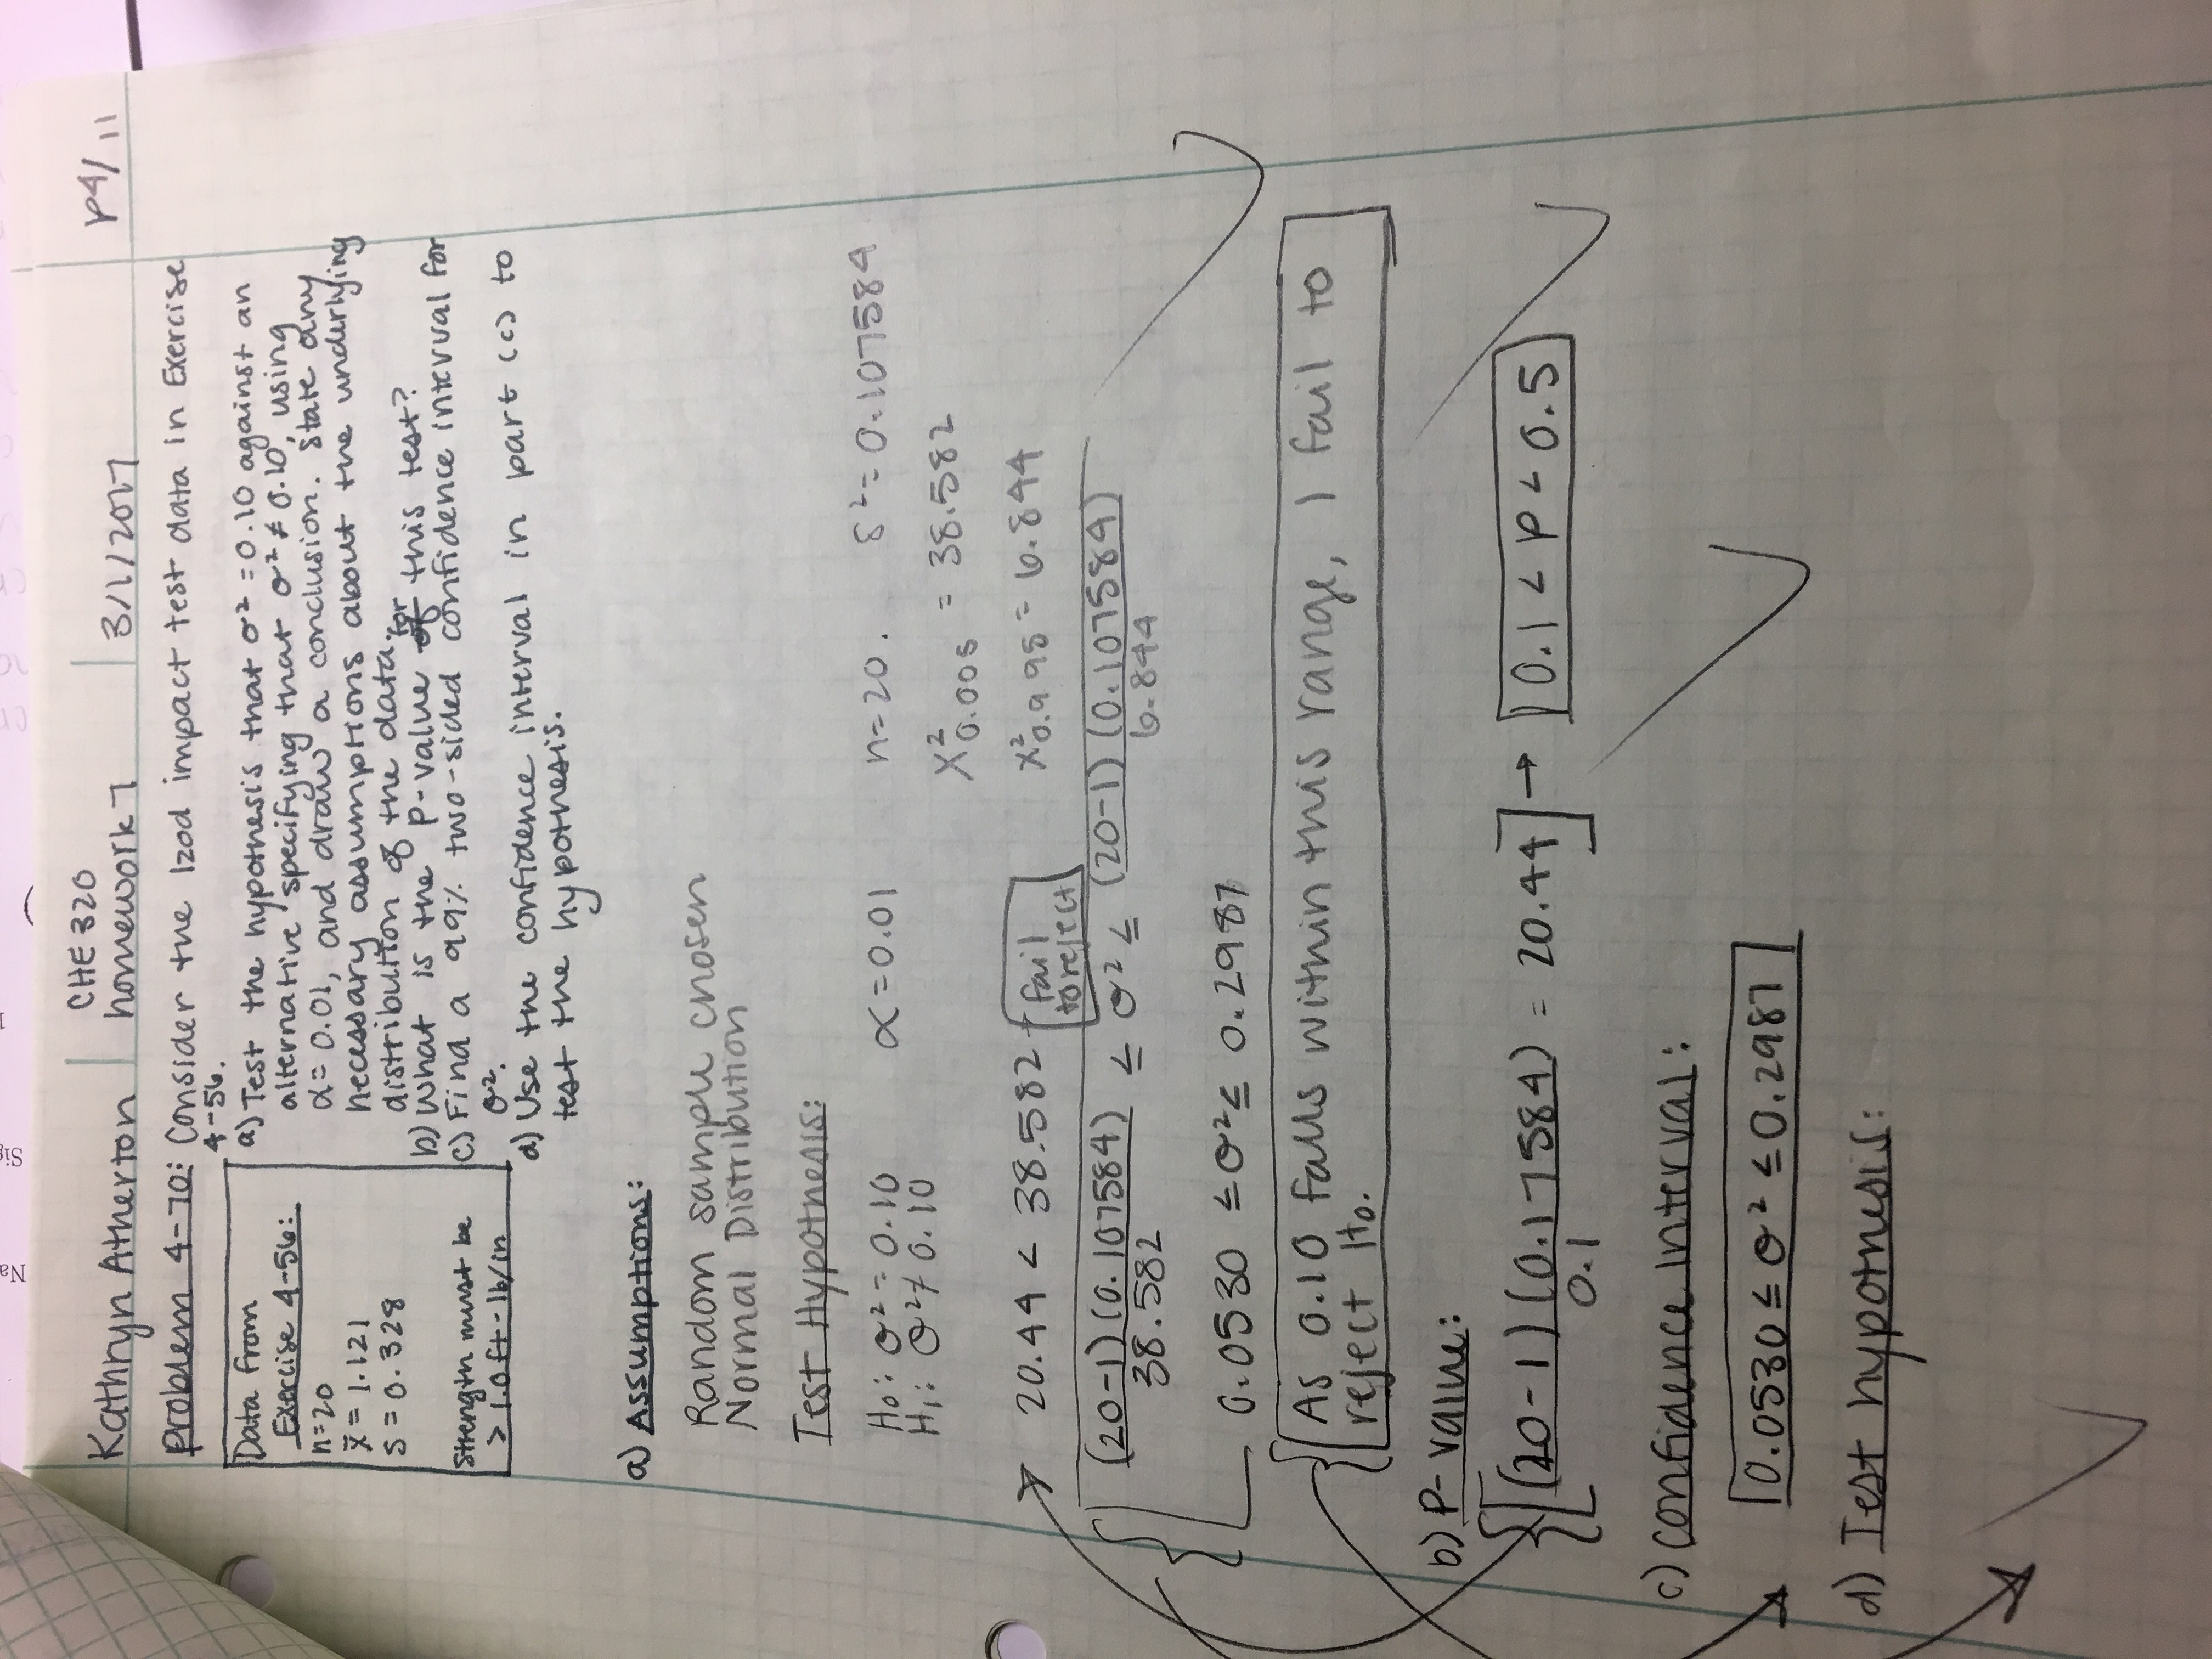 Na
Sig
Kathryn Atherton
CHE 320
homework 7
3/1/2017
p4/11
Problem 4-70: Consider the Izod impact test data in Exercise
4-56.
Data from
Exercise 4-56:
n=20
x̄ = 1.121
s = 0.328
Strength must be
> 1.0 ft-lb/in
a) Test the hypothesis that σ² = 0.10 against an
alternative specifying that σ² ≠ 0.10, using
α = 0.01, and draw a conclusion. State any
necessary assumptions about the underlying
distribution of the data.
b) What is the P-value for this test?
c) Find a 99% two-sided confidence interval for
σ².
d) Use the confidence interval in part (c) to
test the hypothesis.
a) Assumptions:
Random sample chosen
Normal Distribution
Test Hypothesis:
H₀: σ² = 0.10 α = 0.01 n=20. s² = 0.107584
H₁: σ² ≠ 0.10
X²0.005 = 38.582
20.44 < 38.582 - fail to reject
X²0.995 = 6.844
(20-1)(0.107584)/38.582 ≤ σ² ≤ (20-1)(0.107584)/6.844
0.0530 ≤ σ² ≤ 0.2987
As 0.10 falls within this range, I fail to
reject H₀.
b) P-value:
[(20-1)(0.17584)/0.1 = 20.44] → 0.1 < P < 0.5
c) Confidence Interval:
0.0530 ≤ σ² ≤ 0.2987
d) Test hypothesis: